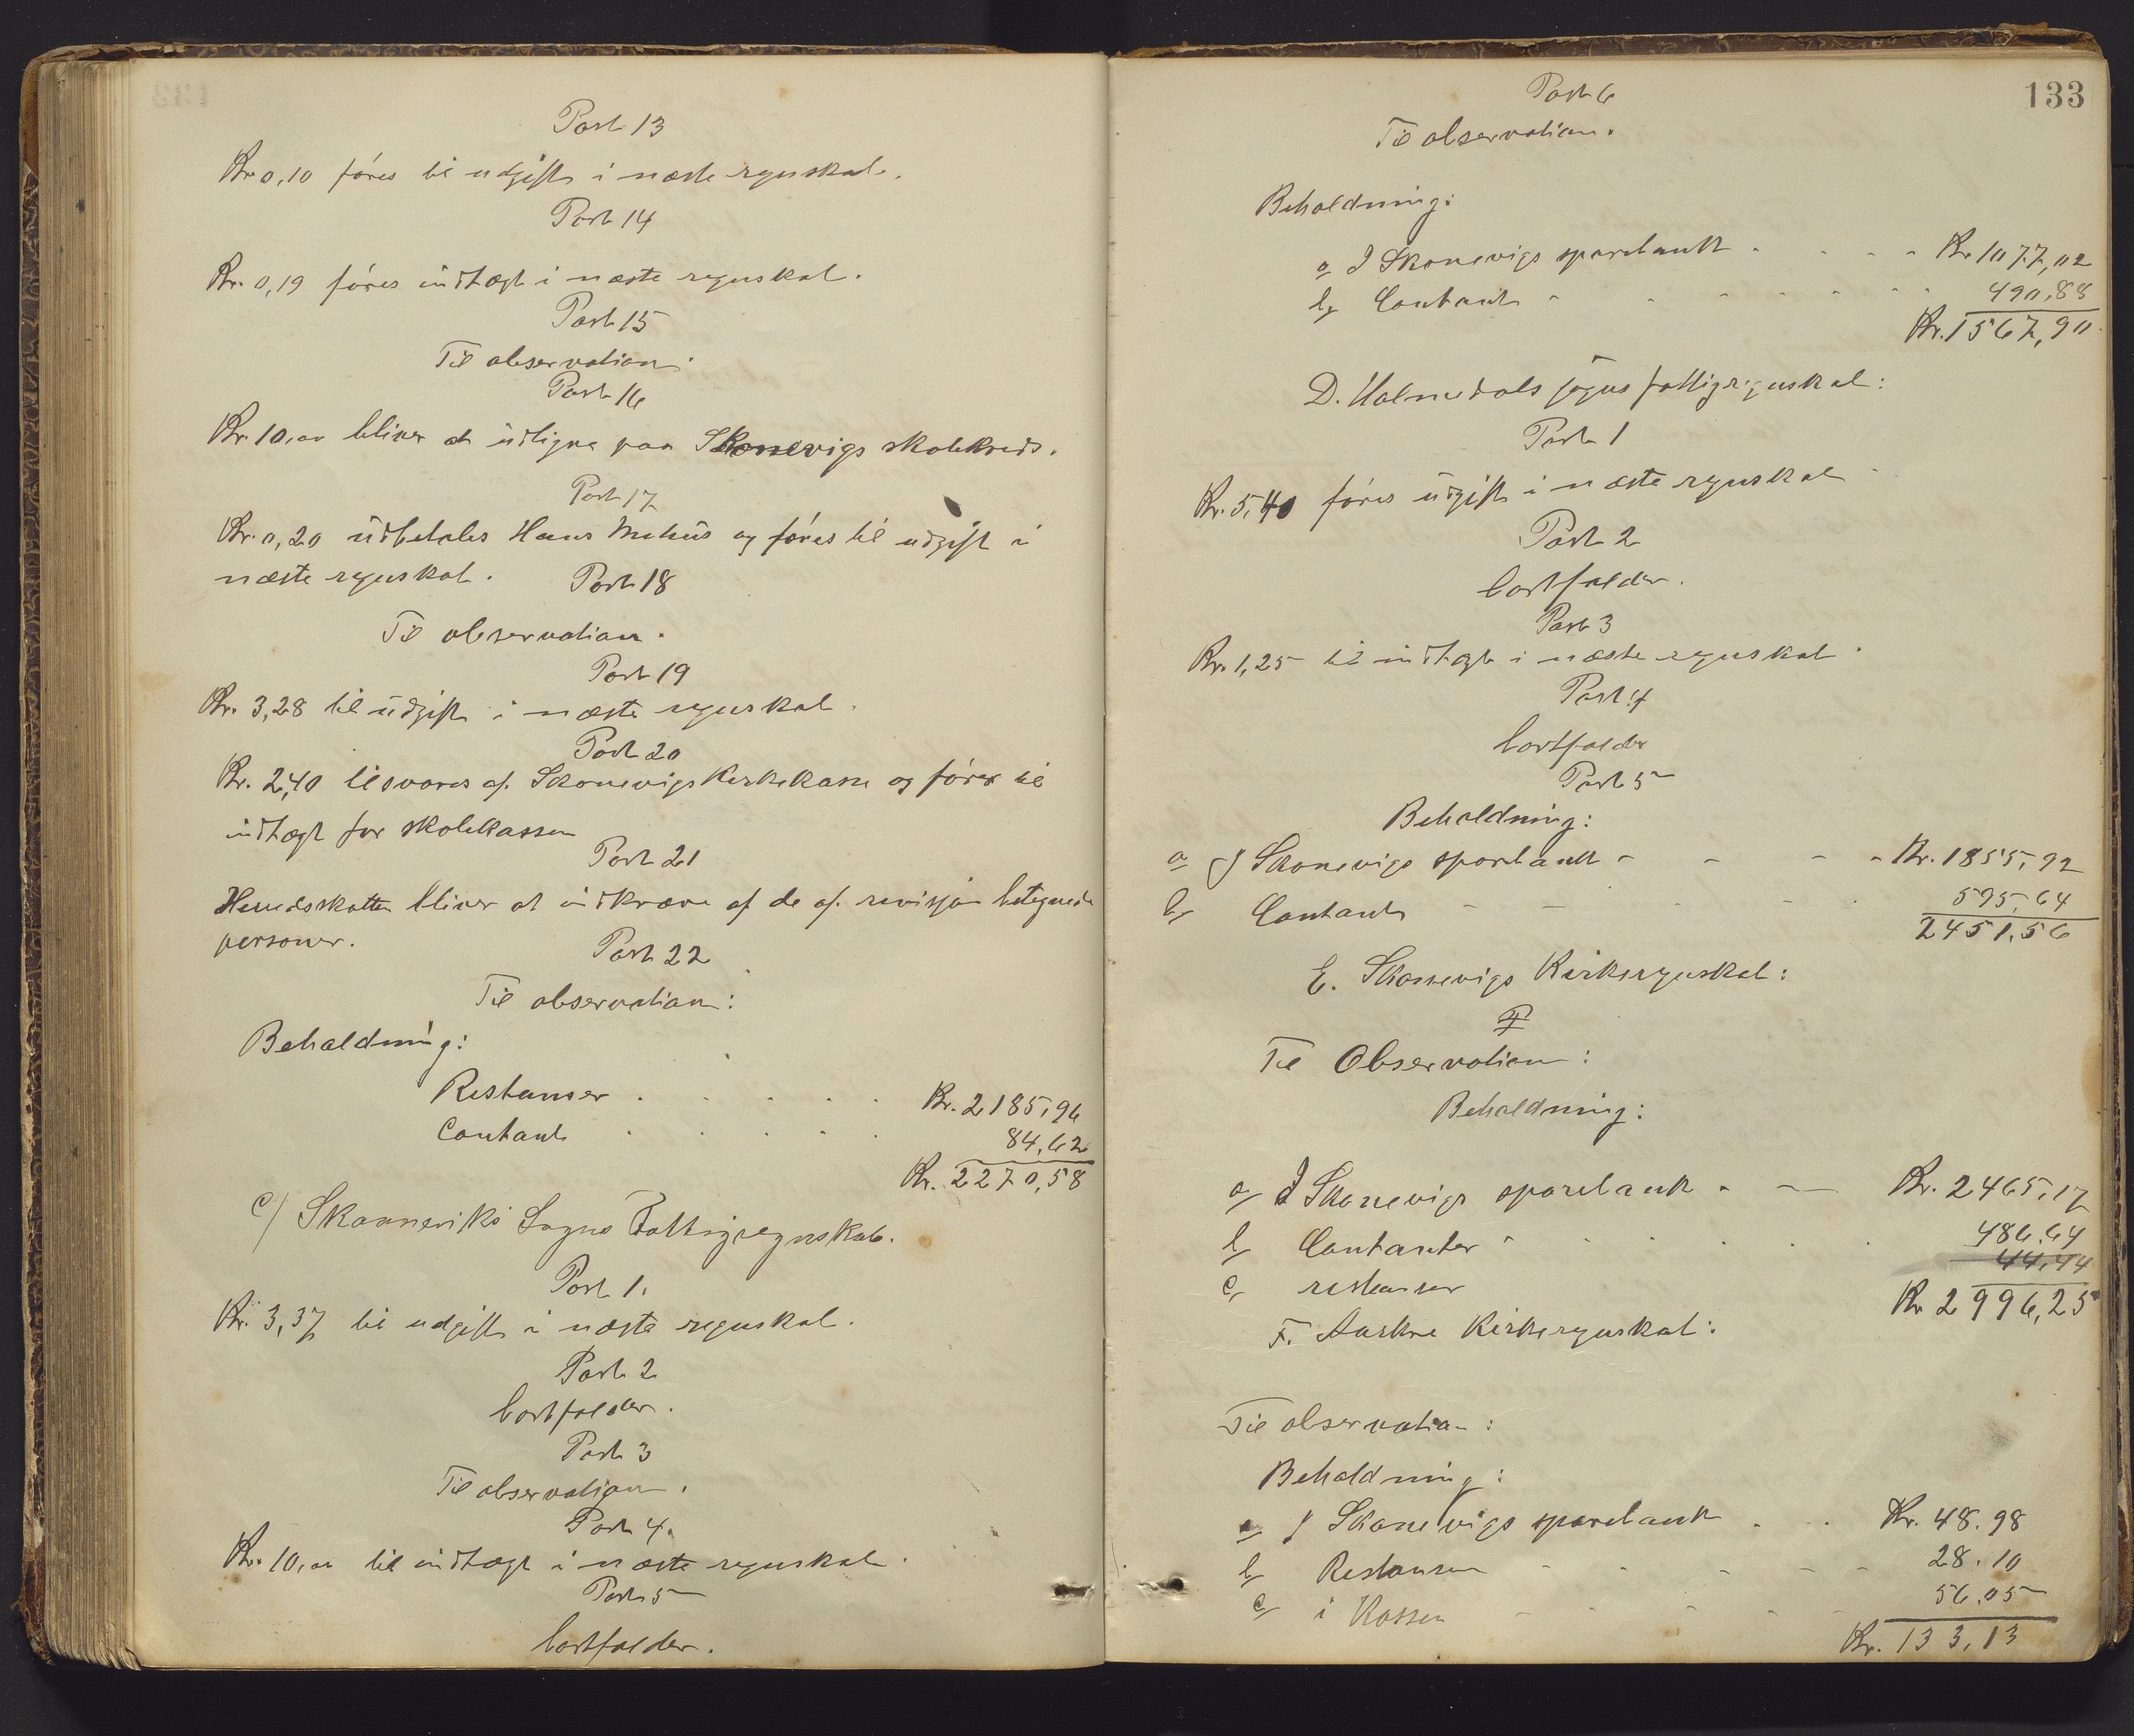 Post 13
Kr 0,10 föres til udgift i næste regnskab.
Post 14
Kr. 0,19 föres indtægt i næste regnskab.
Post 15
Til observation.
Post 16
Kr. 10,00 bliver at udligne paa Skonevigs skolekreds.
Post 17
Kr. 0,20 udbetales Hans Mehus og föres til udgift i
næste regnskab. Post 18
Til observation.
Post 19
Kr. 3,28 til udgift i næste regnskab.
Post 20
Kr. 2,40 tilsvares af Skonevigs Kirkekasse og föres til
indtægt for skolekassen
Post 21
Herredsskatten bliver at indkræve af de af revisjon betegnede
personer. Post 22
Til observation:
Beholdning:
Restanser . . . . . Kr. 2185,96
Contant . . . . . 84,62
Kr. 2270,58
C/ Skaanevik's Sogns Fattigregnskab.
Post 1.
Kr. 3,37 til udgift i næste regnskab.
Post 2
bortfalder.
Post 3
Til observation.
Post 4.
Kr. 10,00 til indtægt i næste regnskab.
Post 5
bortfalder.
133
Post 6
Til observation.
Beholdning:
a, I Skonevigs sparebank - - - - Kr. 1077,02
b, Contant - - - - - - 490,88
Kr. 1567,90
D. Holmedals sogns fattigregnskab:
Post 1
Kr. 5,40 föres udgift i næste regnskab
Post 2
bortfalder.
Post 3
Kr. 1,25 til indtægt i næste regnskab.
Post 4
bortfalder
Post 5
Beholdning:
a I Skonevigs sparebank - - - - Kr. 1855,92
b, Contant - - - - - 595,64
2451,56
E. Skonevigs Kirkeregnskab:
Til Observation:
Beholdning:
a, I Skonevigs sparebank - - Kr. 2465,17
b, Contanter - . . . . 486,64
c, restanser 44,44
Kr 2996,25
F. Aarkre Kirkeregnskab:
Til observation:
Beholdning:
a, I Skonevigs sparebank . . Kr. 48.98
b, Restanser - - - - - 28.10
c, i Kassen - - - - - 56.05
Kr. 133,13